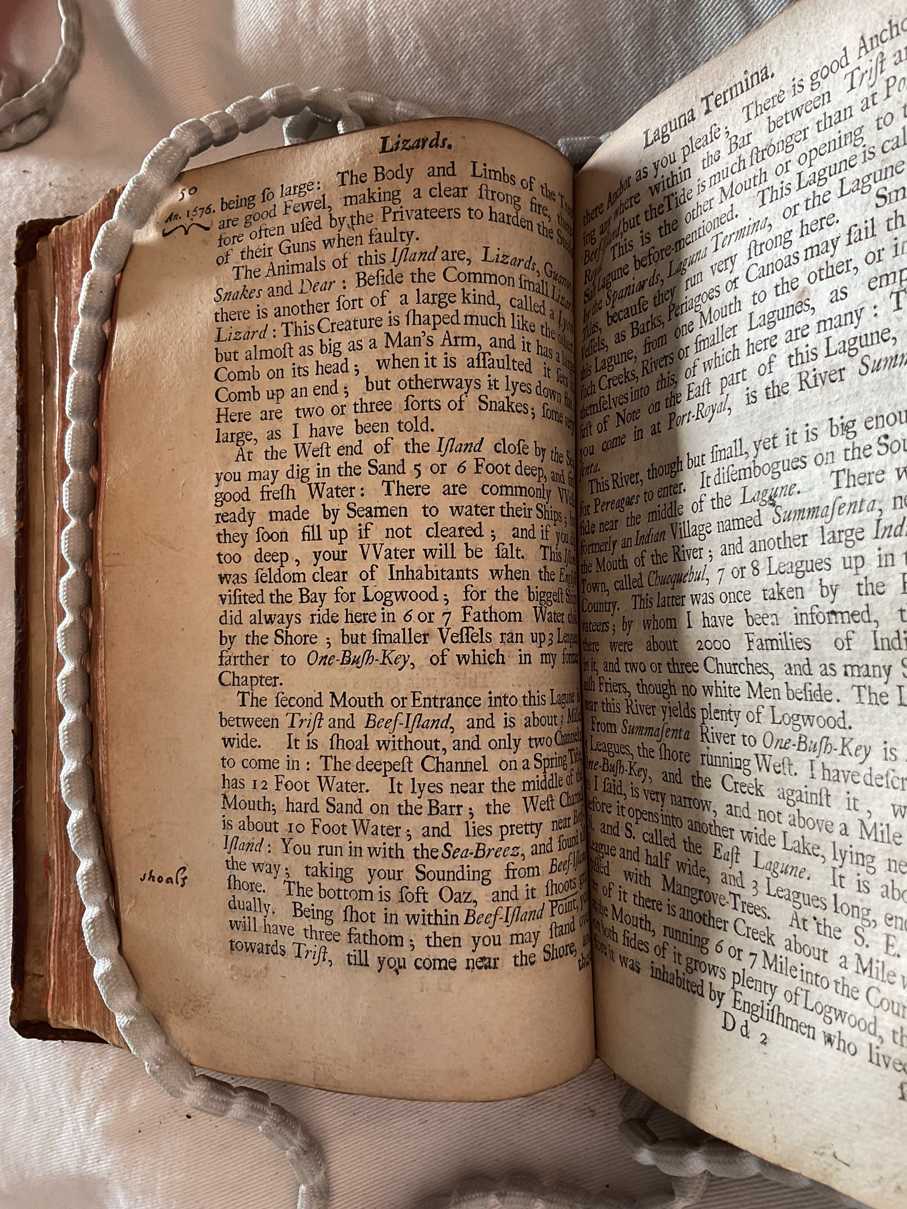 Lizards.
50
An. 1676.
being ſo large: The Body and Limbs of the
are good Fewel, making a clear ſtrong fire,
fore often uſed by the Privateers to harden the
of their Guns when faulty.
The Animals of this Iſland are, Lizards,
Snakes and Dear: Beſide the Common ſmall
there is another ſort of a large kind, called a
Lizard: This Creature is ſhaped much like the other
but almoſt as big as a Man's Arm, and it has a
Comb on its head; when it is aſſaulted it ſets
Comb up an end; but otherways it lyes down
Here are two or three ſorts of Snakes; ſome very
large, as I have been told.
At the Weſt end of the Iſland cloſe by the
you may dig in the Sand 5 or 6 Foot deep, and
good freſh Water: There are commonly
ready made by Seamen to water their Ships;
they ſoon fill up if not cleared; and if you
too deep, your VVater will be ſalt. This
was ſeldom clear of Inhabitants when the
viſited the Bay for Logwood; for the biggeſt
did always ride here in 6 or 7 Fathom Water
by the Shore; but ſmaller Veſſels ran up 3
farther to One-Buſh-Key, of which in my
Chapter.
The ſecond Mouth or Entrance into this Lagune
between Triſt and Beef-Iſland, and is about 3
wide. It is ſhoal without, and only two Channels
to come in: The deepeſt Channel on a Spring Tide
has 12 Foot Water. It lyes near the middle of the
Mouth; hard Sand on the Barr; the Weſt
is about 10 Foot Water; and lies pretty near
Iſland: You run in with the Sea-Breez, and ſound
the way; taking your Sounding from Beef-Iſland
ſhore. The bottom is ſoft Oaz, and it ſhoots
dually. Being ſhot in within Beef-Iſland Point,
will have three fathom; then you may ſtand over
towards Triſt, till you come near the Shore,
shoals
Laguna Termina.
there Anchor as you pleaſe; There is good
ing any where within the Bar between Triſt
but the Tide is much ſtronger than at
This is the other Mouth or opening to
Lagune before-mentioned. This Lagune is
by the Spaniards, Laguna Termina, or the Lagune
becauſe they run very ſtrong here.
Veſſels, as Barks, Periagoes or Canoas may ſail
this Lagune, from one Mouth to the other, or
ſuch Creeks, Rivers or ſmaller Lagunes, as
themſelves into this, of which here are many:
firſt of Note on the Eaſt part of this Lagune,
you come in at Port-Royal, is the River
This River, though but ſmall, yet it is big
for Pereagoes to enter. It diſembogues on the
ſide near the middle of the Lagune. There
formerly an Indian Village named Summaſenta,
the Mouth of the River; and another large
Town, called Chucquebul, 7 or 8 Leagues up in
Country. This latter was once taken by the
vateers; by whom I have been informed,
there were about 2000 Families of
in it, and two or three Churches, and as many
Friers, though no white Men beſide. The
near this River yields plenty of Logwood.
From Summaſenta River to One-Buſh-Key is
Leagues, the ſhore running Weſt. I have
One-Buſh-Key, and the Creek againſt it,
I ſaid, is very narrow, and not above a Mile
before it opens into another wide Lake, lying
and S. called the Eaſt Lagune. It is
League and half wide, and 3 Leagues long,
with Mangrove-Trees. At the S. E.
of it there is another Creek about a Mile
the Mouth, running 6 or 7 Mile into the
both ſides of it grows plenty of Logwood,
it was inhabited by Engliſhmen who
D d 2